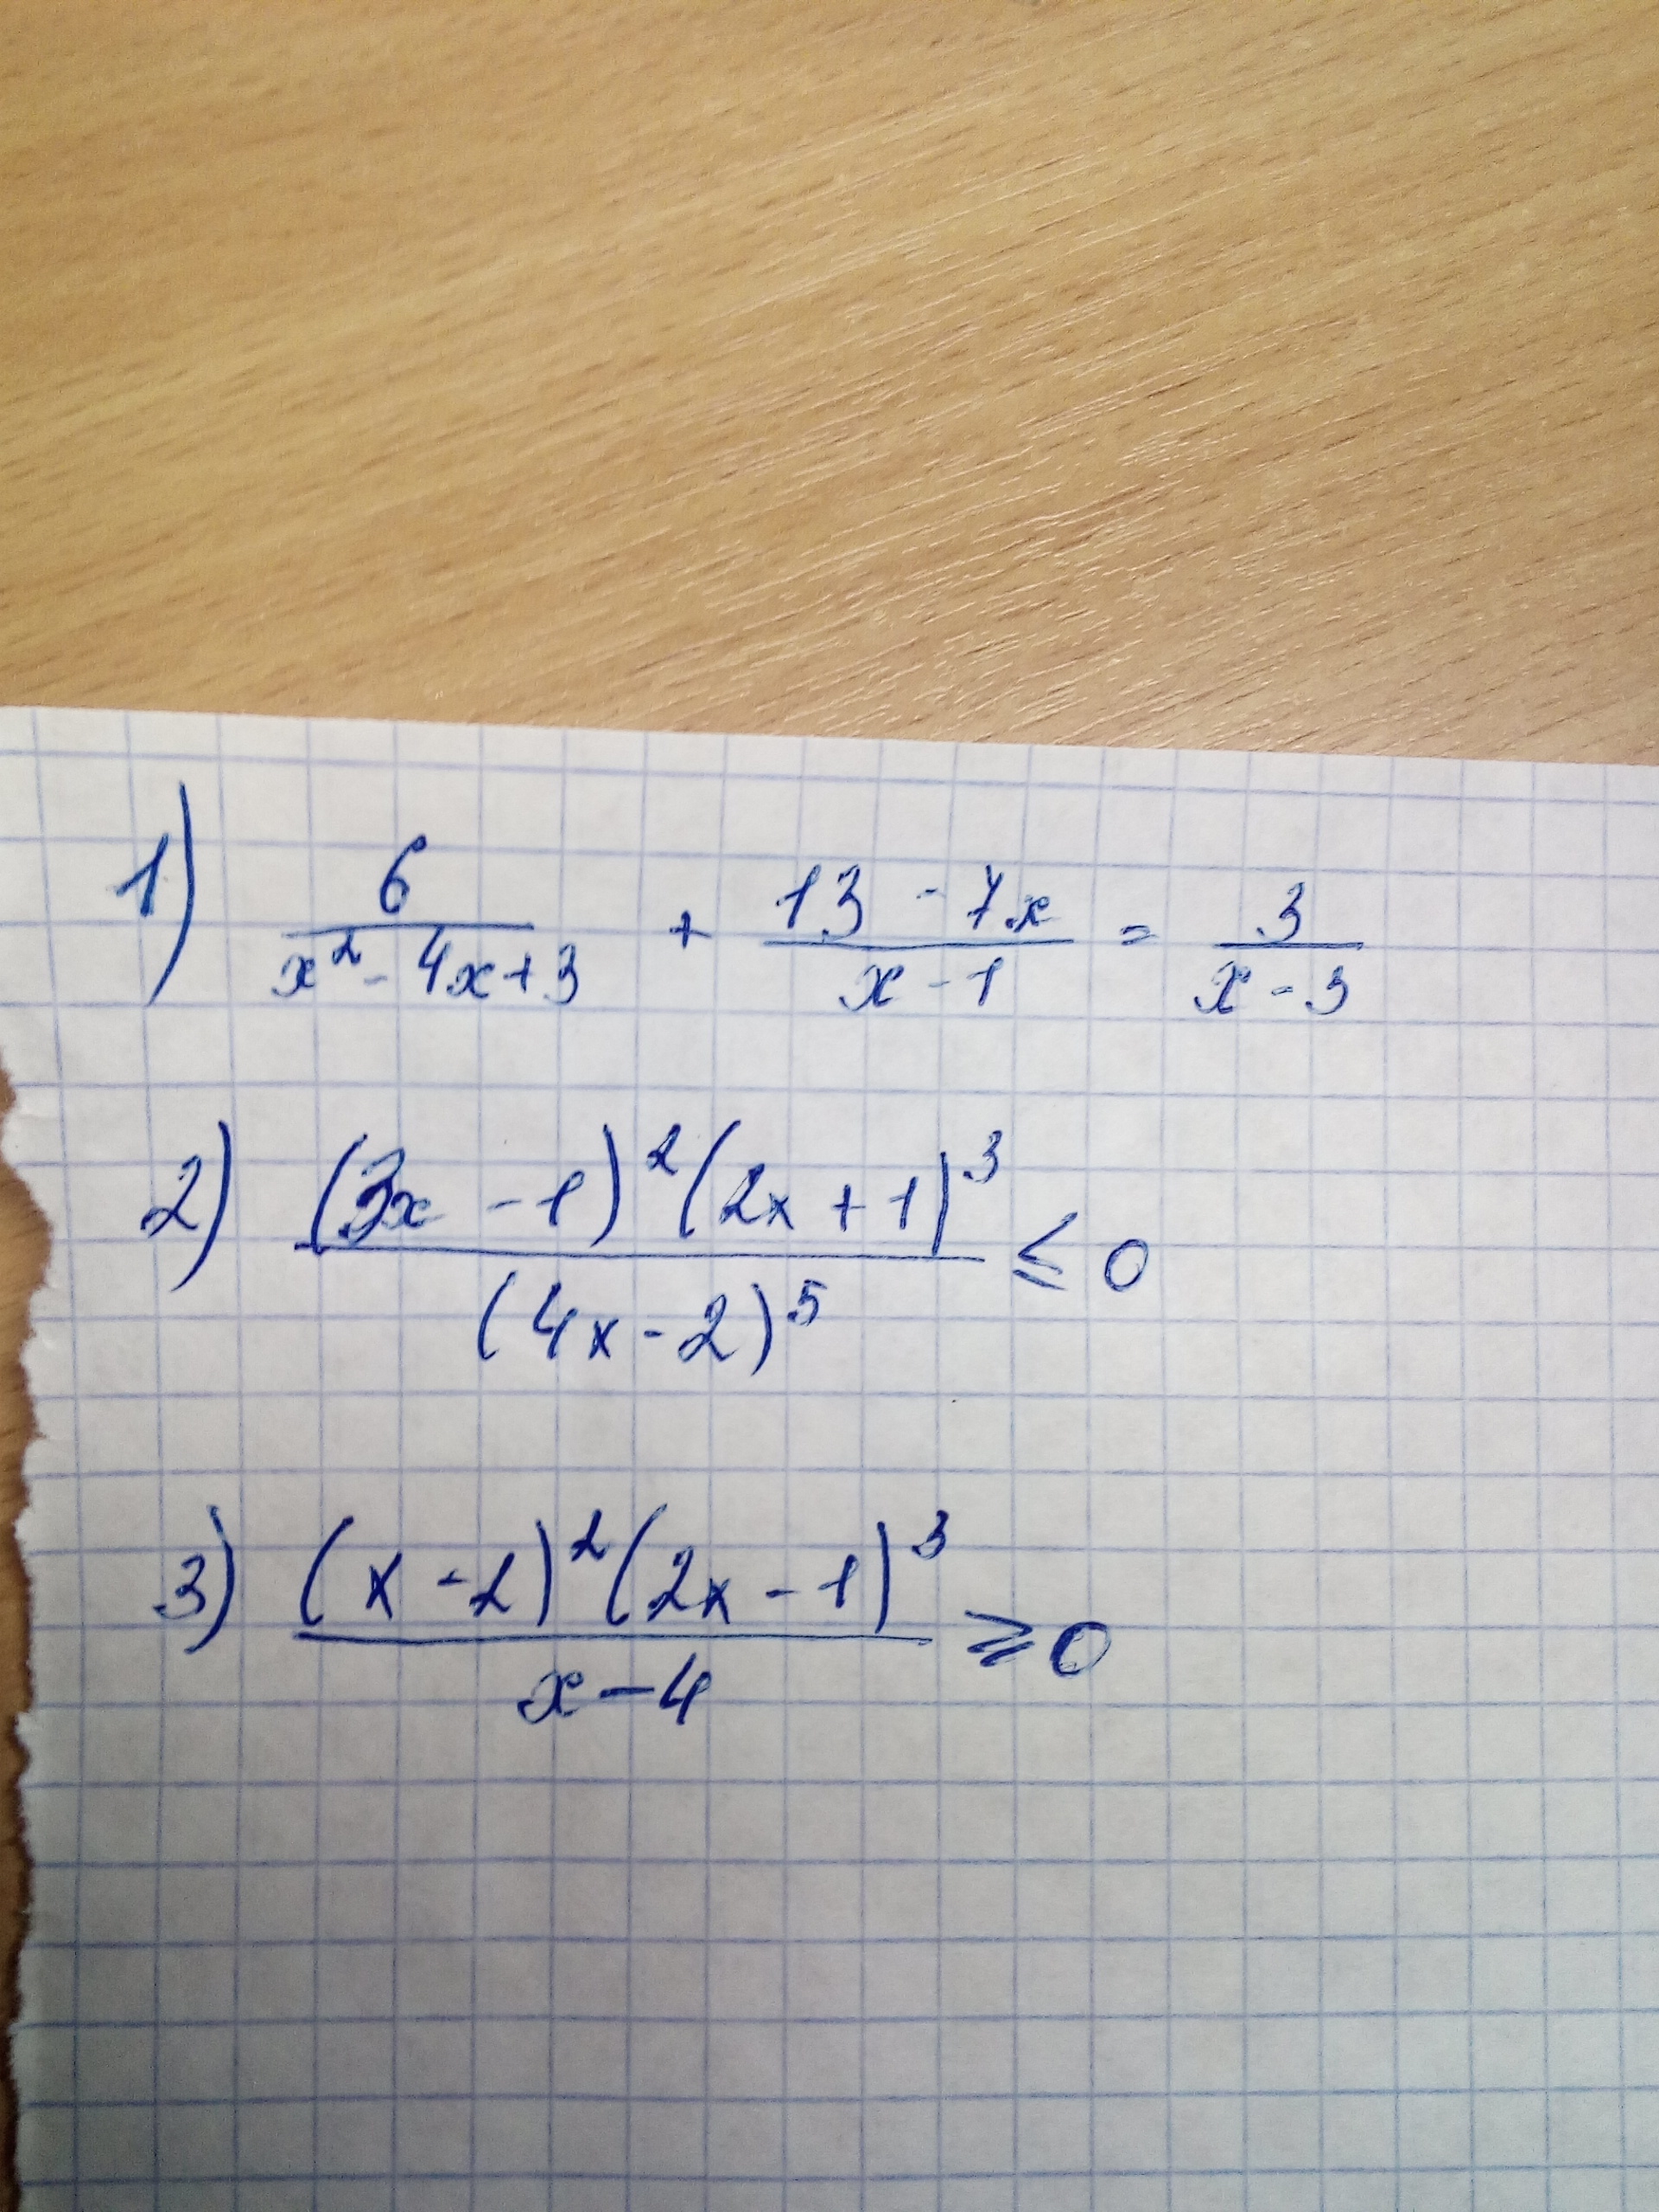 1) \frac{6}{x^2 - 4x + 3} + \frac{13 - 7x}{x - 1} = \frac{3}{x - 3}
2) \frac{(3x - 1)^2 (2x + 1)^3}{(4x - 2)^5} ≤ 0
3) \frac{(x - 2)^2 (2x - 1)^3}{x - 4} ⩾ 0